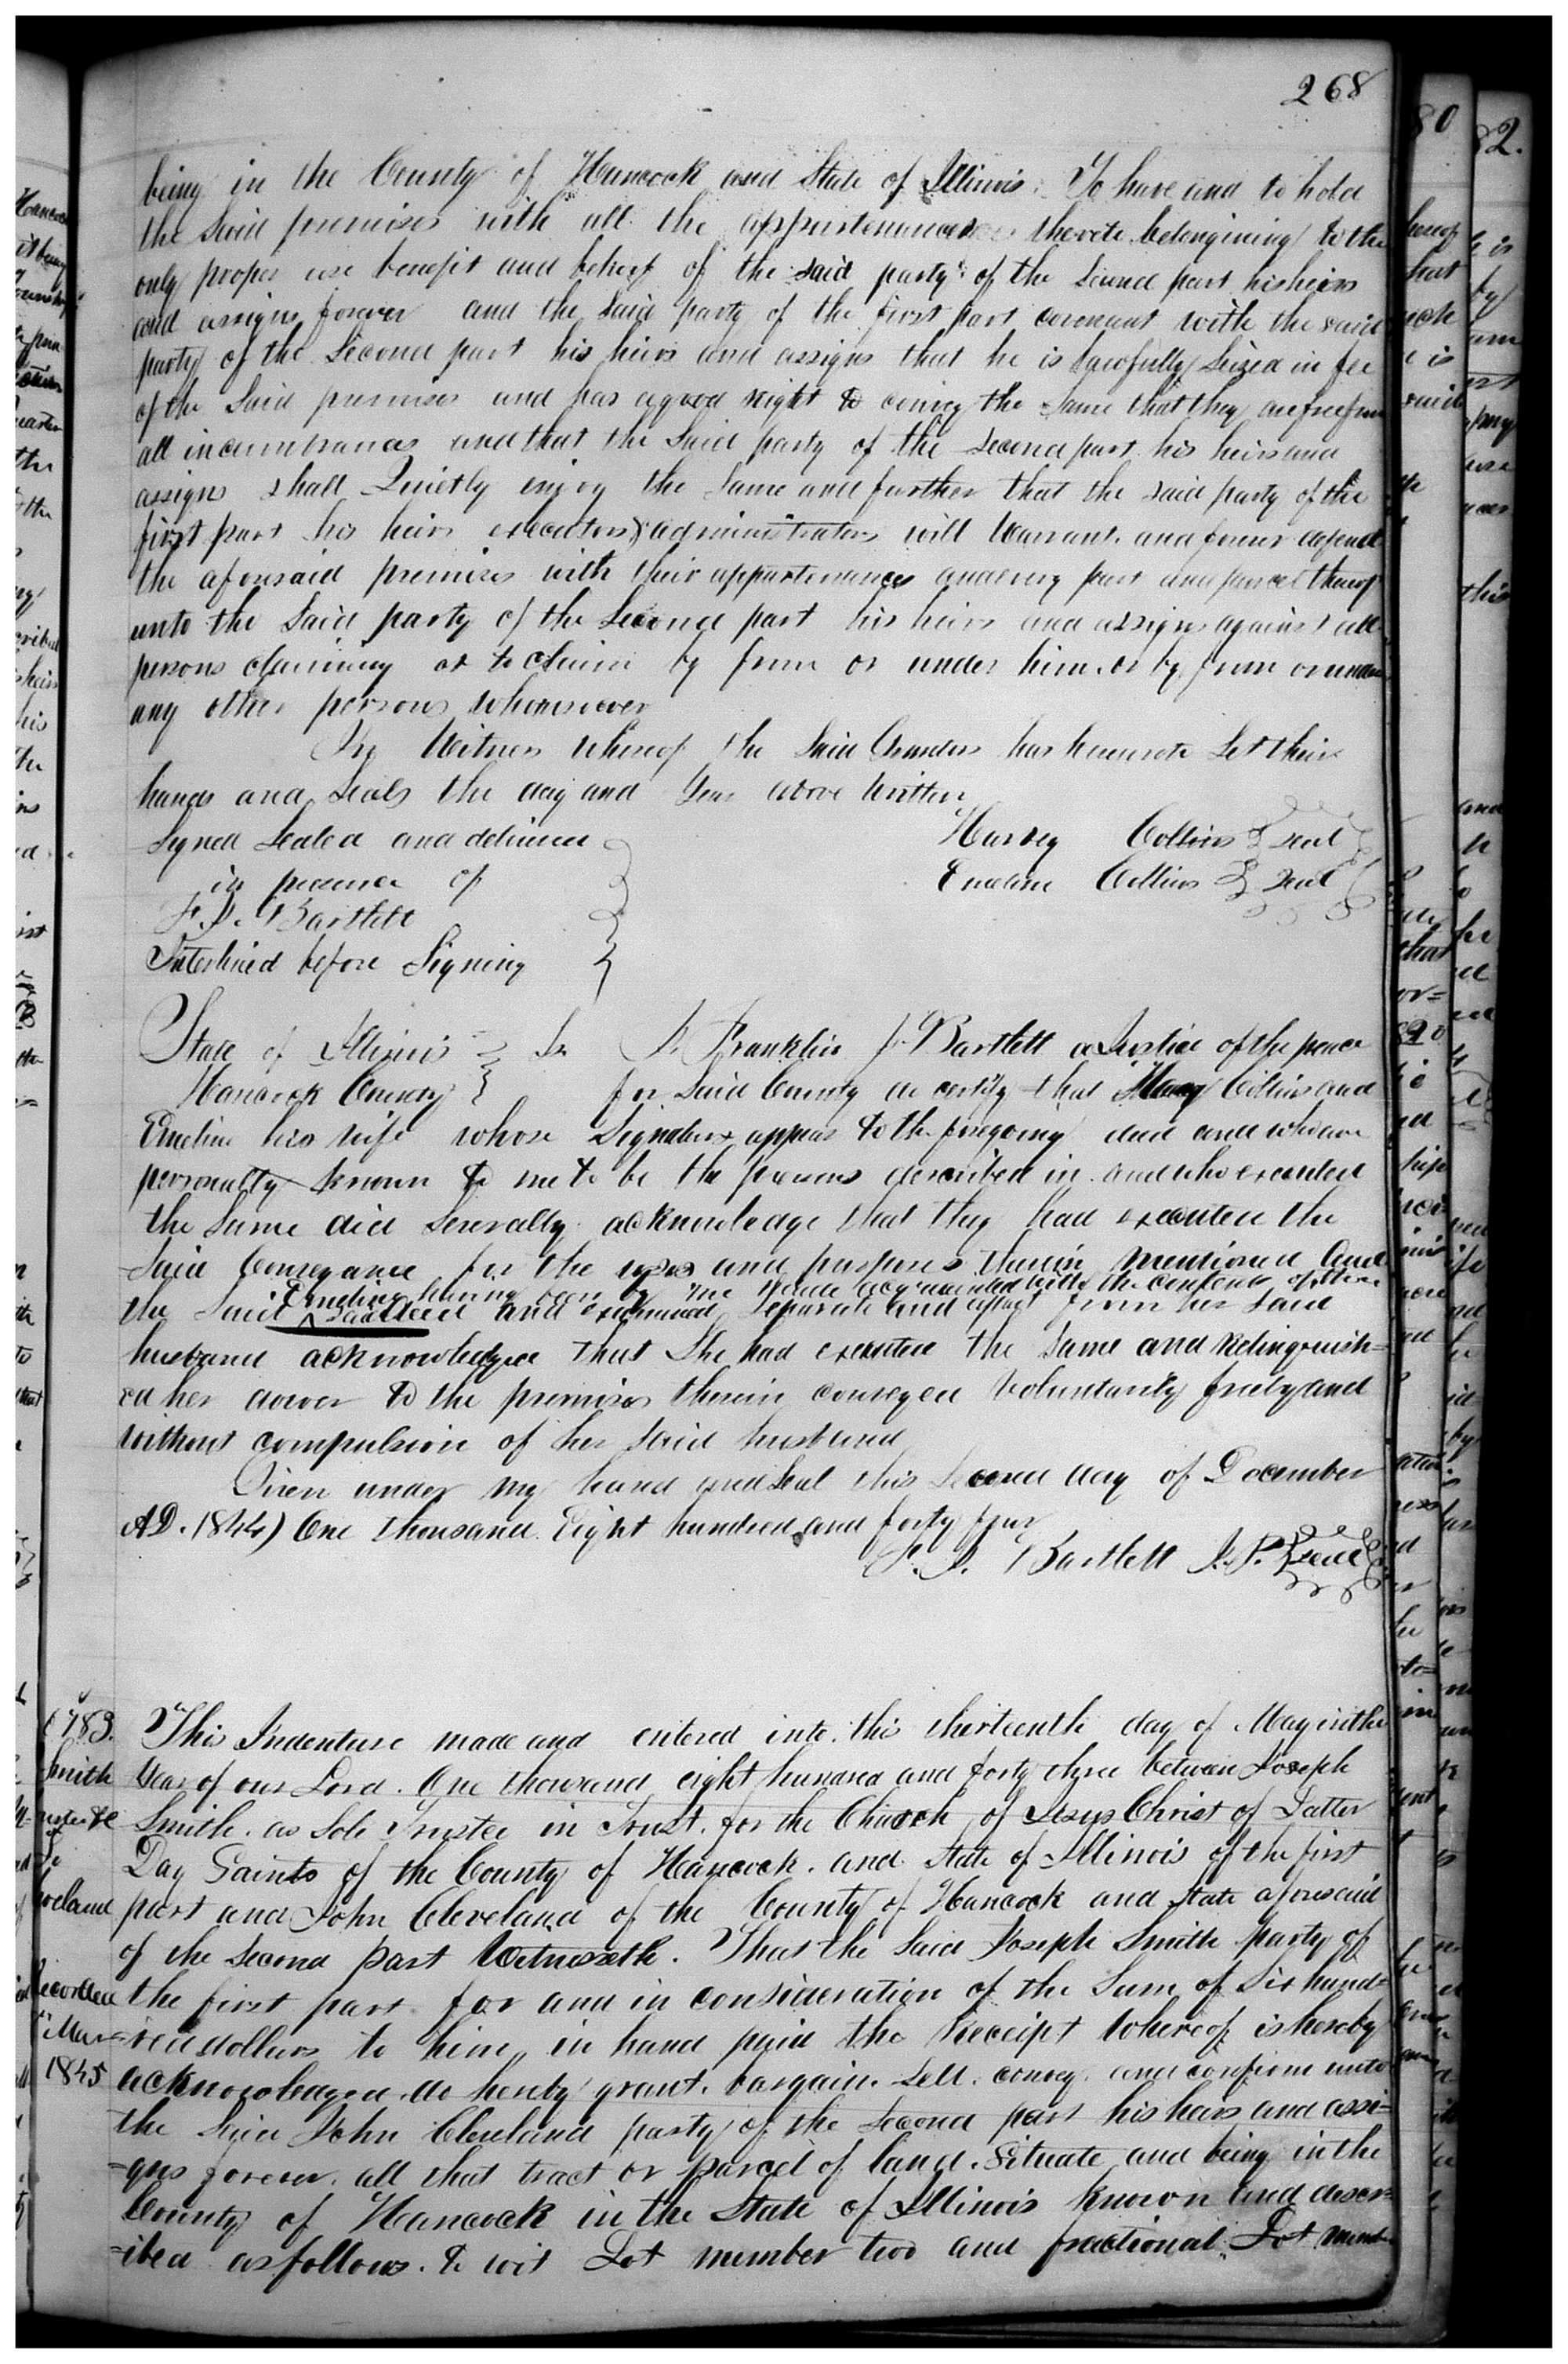 268
being in the County of Hancock and State of Illinois. To have and to hold
the Said premises with all the appurtenances thereto belongining to the
only proper use benefit and behoof of the said party of the Second part his heirs
and assigns forever and the Said party of the first part covenant with the said
party of the Second part his heirs and assigns that he is lawfully Seized in fee
of the Said premises and has a good right to convey the same that they are free from
all incumbrances and that the Said party of the Second part his heirs and
assigns shall Quietly enjoy the Same and further that the said party of the
first part his heirs executors & administrators will Warrant and forever defend
the aforesaid premises with their appurtenances and every part and parcel thereof
unto the Said party of the Second part his heirs and assigns against all
persons claiming or to claim by from or under him or by from or under
any other persons whomsoever
In Witness whereof the Said Grantors has hereunto Set their
hands and Seals the day and Year above written
Signed Sealed and delivered
Harvey Collins Seal
in presence of
Emeline Collins Seal
F. J. Bartlett
Interlined before Signing
State of Illinois } Ss I Franklin J. Bartlett a Justice of the peace
Hancock County } for Said County do certify that Harvey Collins and
Emeline his wife whose Signatures appear to the foregoing deed and who are
personally known to me to be the persons described in and who executed
the Same did Severally acknowledge that they had executed the
Said Conveyance for the uses and purposes therein mentioned And
Emeline having been by me made acquainted with the contents of the
the Said and examined Separate and apart from her Said
husband acknowledged that She had executed the Same and Relinquish=
ed her dower to the premises therein conveyed Voluntarily freely and
without compulsion of her Said husband
Given under my hand and Seal this Second day of December
A.D. 1844) One thousand Eight hundred and forty four
F. J. Bartlett J. P. Seal
783. This Indenture made and entered into this thirteenth day of May in the
Smith Year of our Lord. One thousand eight hundred and forty three between Joseph
Smith. as Sole Trustee in Trust. for the Church of Jesus Christ of Latter
Day Saints of the County of Hancock. and State of Illinois of the first
part and John Cleveland of the County of Hancock and State aforesaid
of the Second part Witnesseth. That the Said Joseph Smith party of
Recorded the first part for and in consideration of the Sum of Six hund=
Mar =red dollars to him, in hand paid the Receipt Whereof is hereby
1845 acknowledged. do hereby grant. bargain. Sell. convey. and confirm unto
the Said John Cleveland party of the Second part his heirs and assi=
=gns forever. all that tract or parcel of land. Situate and being in the
County of Hancock in the State of Illinois known and descr=
=ibed as follows. to wit Lot number two and fractional Lot numb=